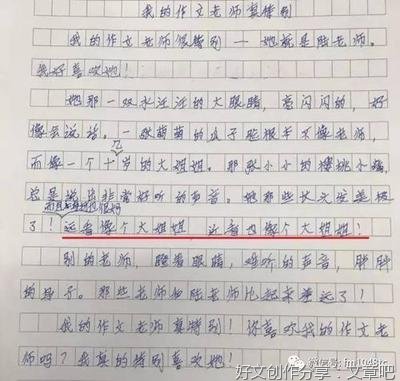 我的作文老师真特别
我的作文老师很特别一她就是陆老师。
我好喜欢她!
她那一双水汪汪的大眼睛,亮闪闪的,好
像会说话。一张萌萌的瓜子脸根本不像老师,
几
而像一个十岁的大姐姐。那张小小的樱桃小嘴,
总是说出非常好听的声音。她那些长文发是极
而且她对我们很好
了!远看像个大姐姐,近看也像个大姐姐!
别的老师,瞪着眼睛,难听的声音,胖胖
的身子。那些老师和陆老师比起来差远了!
我的作文老师真特别!你喜欢我的作文老
师吗?我真的特别喜欢她!
微信号: fm1048tc
好文创作分享:文章吧